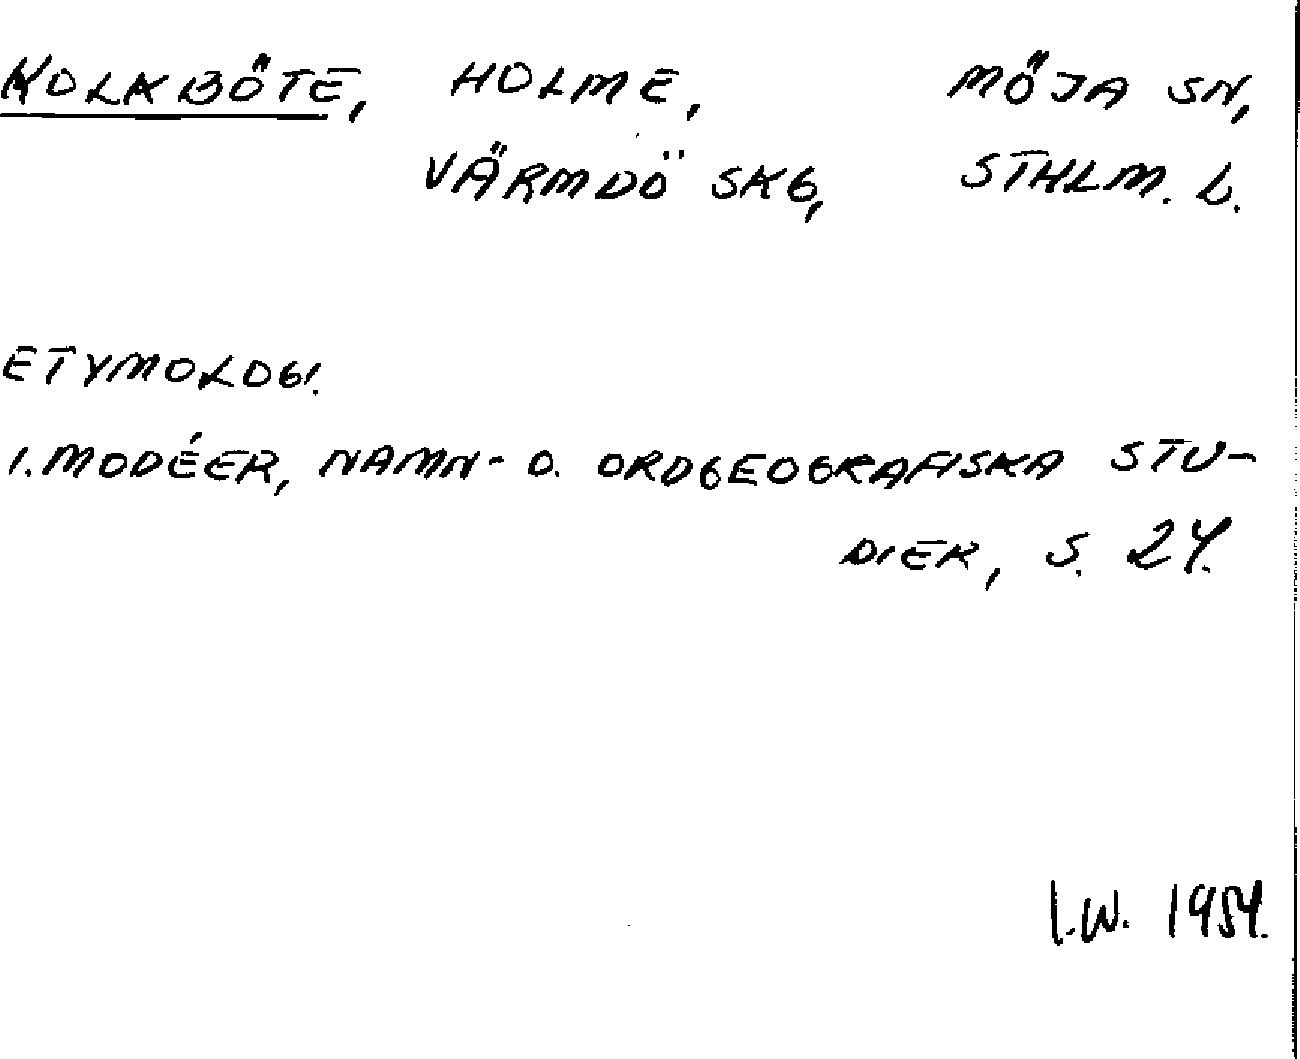 KOLKBÖTE, HOLME, MÖJA SN,
VÄRMDÖ SKG, STHLM. L.
ETYMOLOGI.
I. MODÉER, NAMN- O. ORDGEOGRAFISKA STU-
DIER, S. 24.
I.W. 1954.